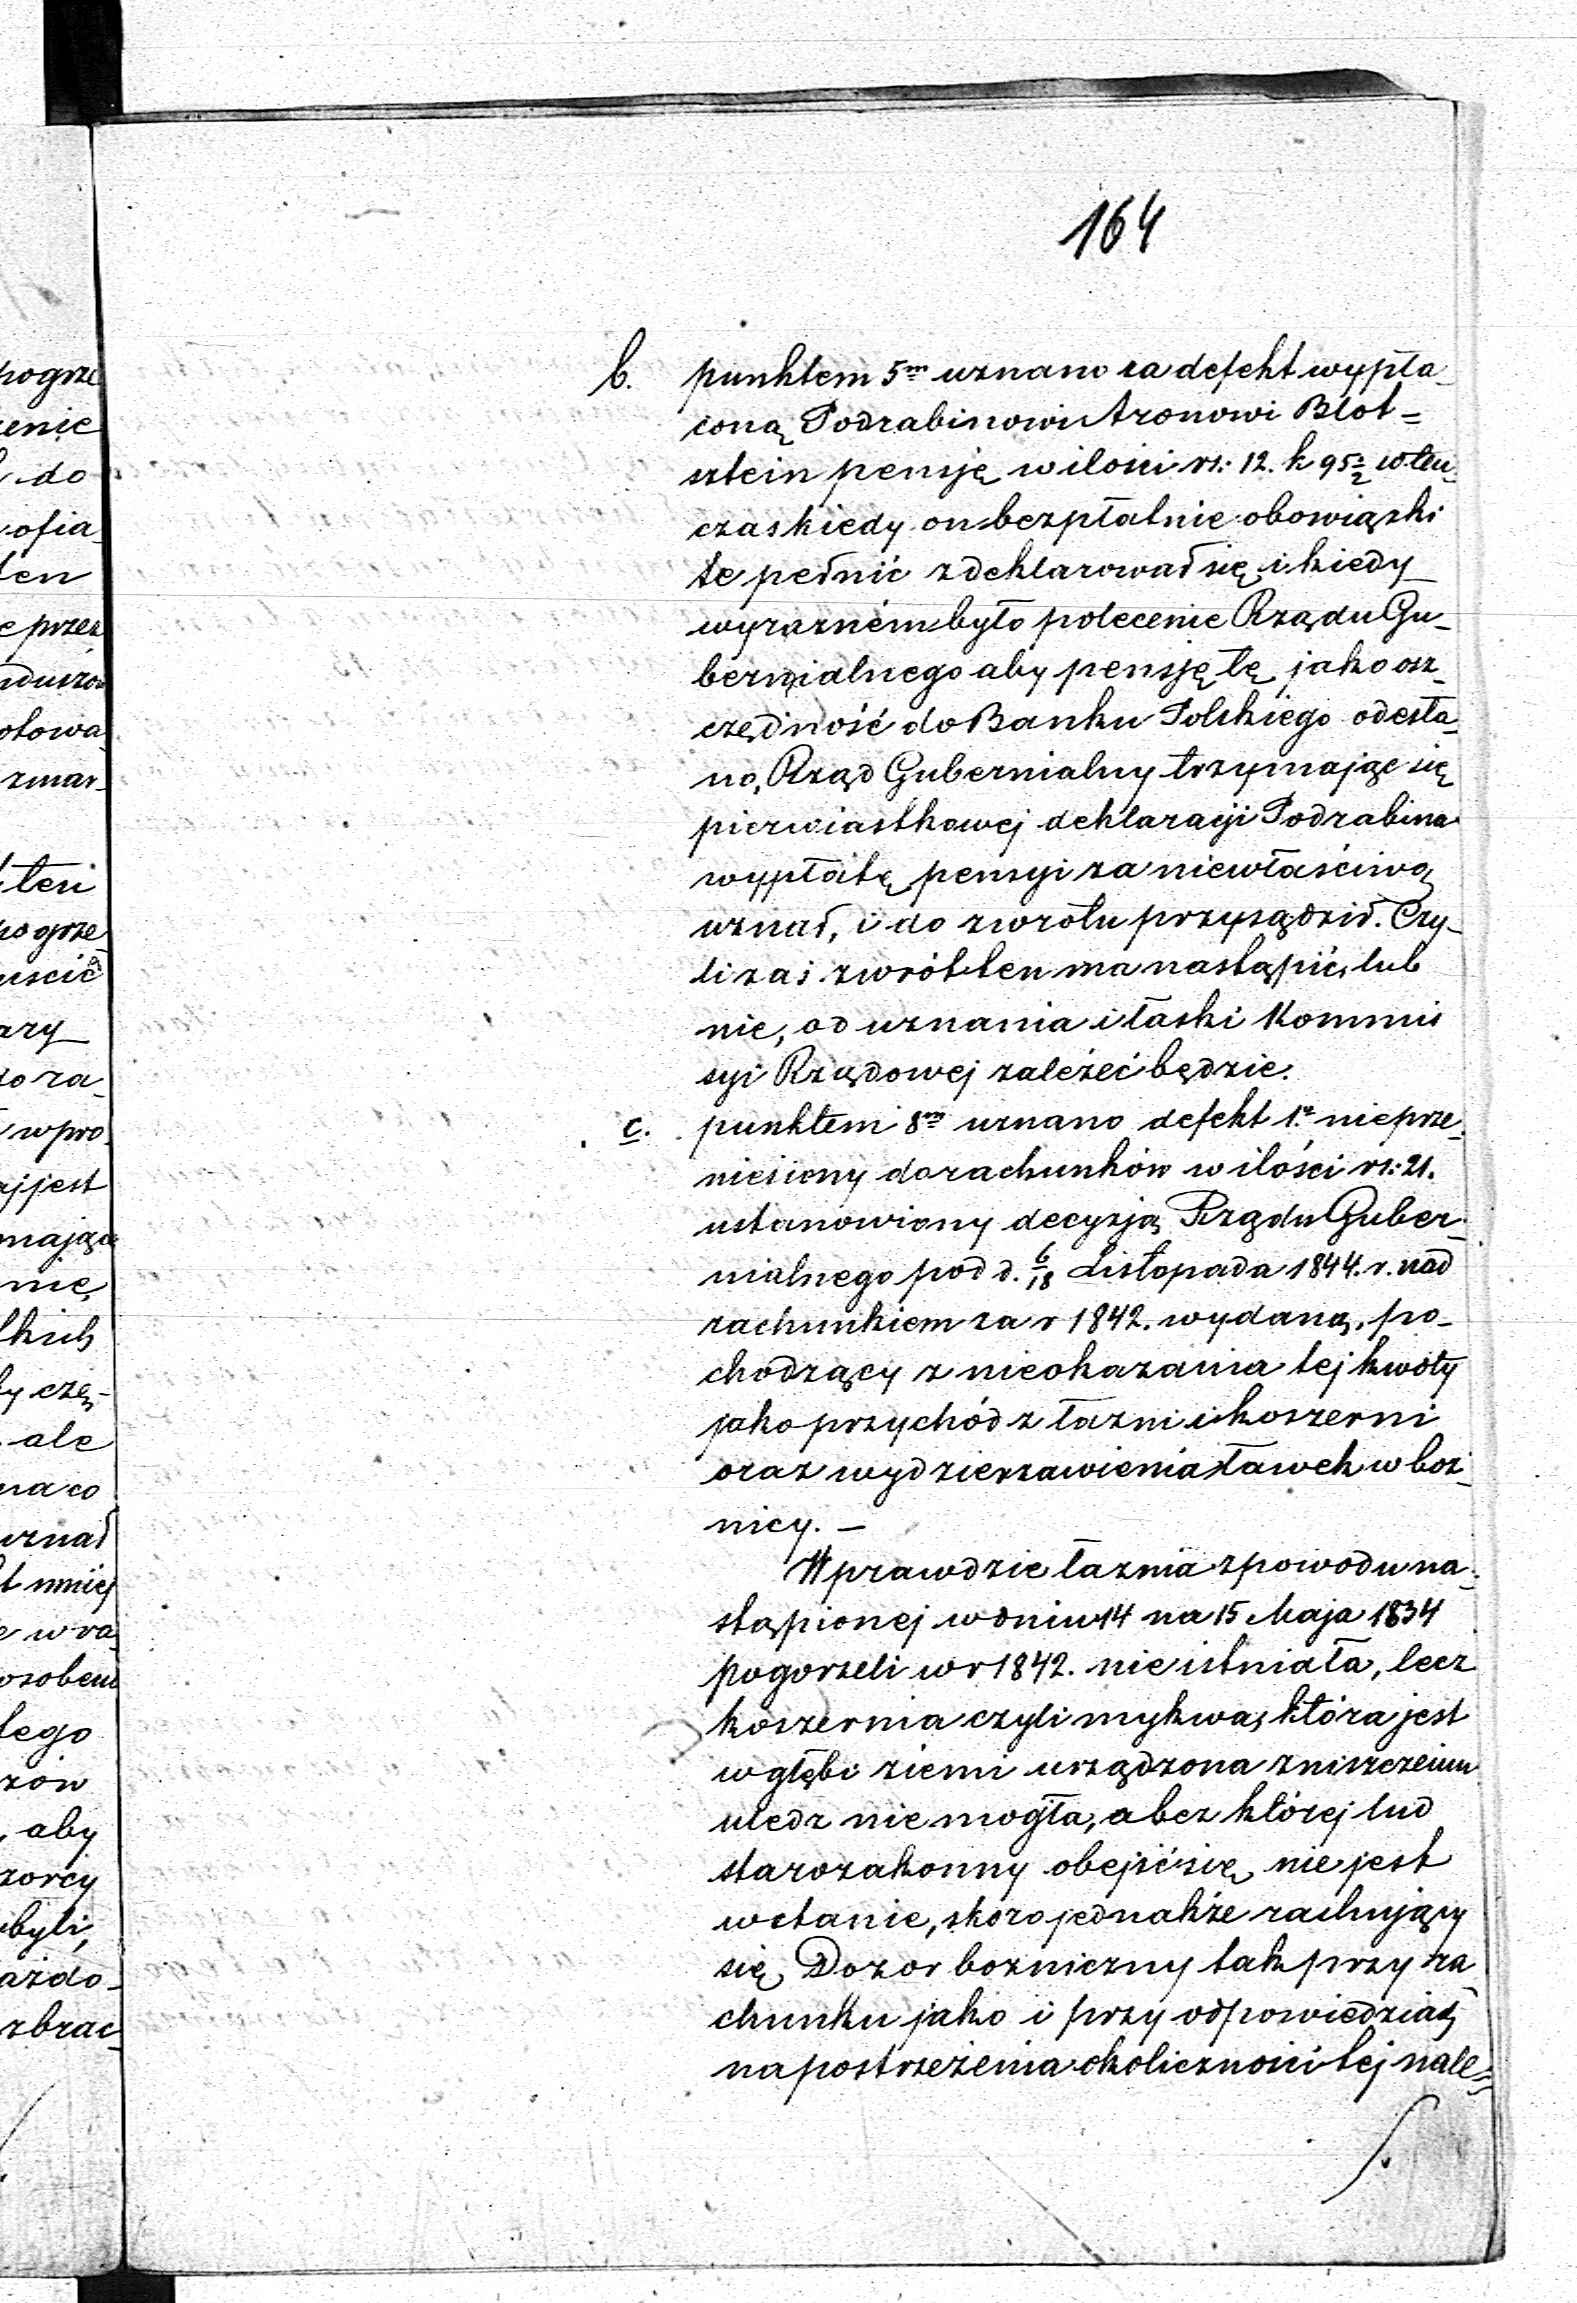 164
b. punktem 5m uznano za defekt wypła-
coną Podrabinowi Aronowi Blot=
sztein pensję w ilości rs: 12. k 95½ w ten-
czas kiedy on bezpłatnie obowiązki
te pełnić zdeklarował się i kiedy
wyraźném było polecenie Rządu Gu-
bernialnego aby pensję tę jako osz-
czędność do Banku Polskiego odesła-
no, Rząd Gubernialny trzymając się
pierwiastkowej deklaracyi Podrabina
wypłatę pensyi za niewłaściwą
uznał, i do zwrotu przysądził. Czy-
li zaś zwrót ten ma nastąpić, lub
nie, od uznania i łaski Kommis
syi Rządowej zależéć będzie.
c. punktem 8m uznano defekt 1.e nieprze-
niesiony do rachunków w ilości rs: 21.
ustanowiony decyzją Rządu Guber-
nialnego pod d. 6/18 Listopada 1844. r. nad
rachunkiem za r 1842. wydaną, po-
chodzący z nieokazania tej kwoty
jako przychód z łazni i koszerni
oraz wydzierzawienia ławek w boż-
nicy. —
Wprawdzie łaznia z powodu na-
stąpionej w dniu 14 na 15 Maja 1834
pogorzeli w r 1842. nie istniała, lecz
koszernia czyli mykwa, która jest
w głębi ziemi urządzona zniszczeniu
uledz nie mogła, a bez której lud
starozakonny obejść się nie jest
w stanie, skoro jednakże rachujący
się Dozor bozniczny tak przy ra-
chunku jako i przy odpowiedziach
na postrzeżenia okoliczności tej nale=